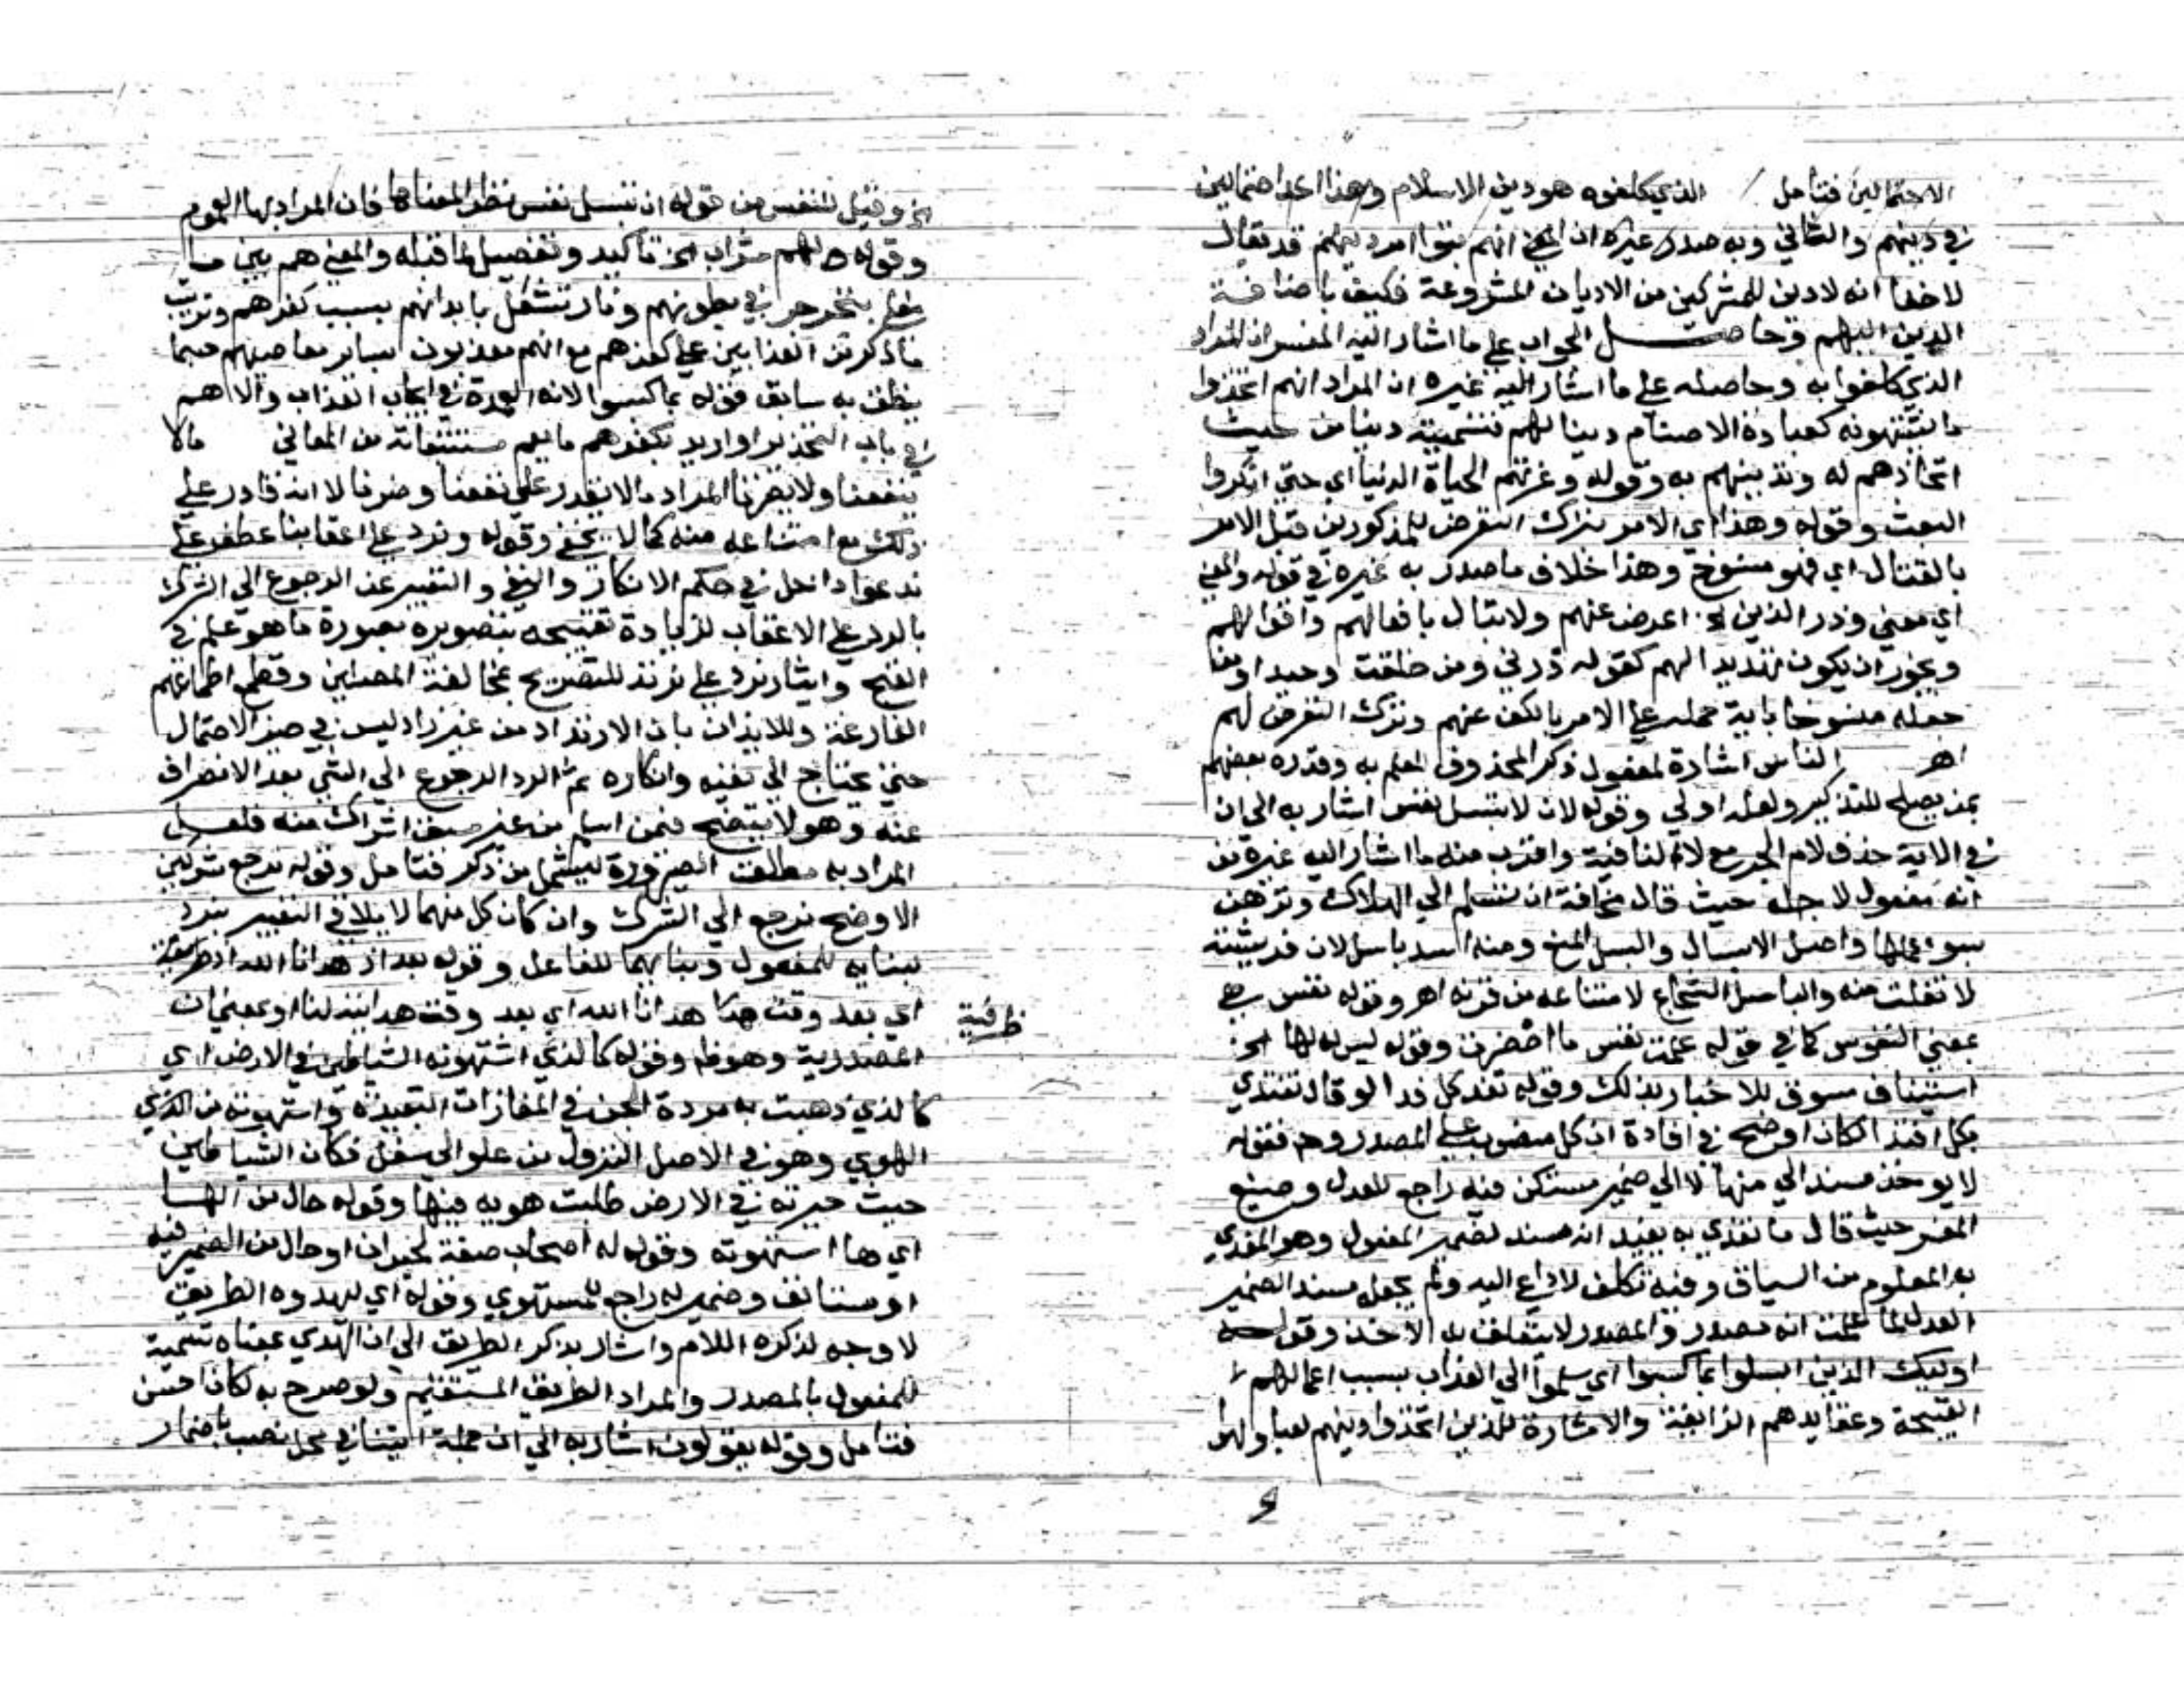 الاحتمالين فتامل الذي كلفوه هو دين الاسلام وهذا احد احتمالين
في دينهم والثاني وبه صدر غيره ان المعني انهم بنوا امر دينهم قد يقال
لا خفا انه لا دين للمشركين من الاديان المشروعة فكيف باضافة
الدين اليهم وحاصل الجواب علي ما اشار اليه المفسر ان المراد
الذي كلفوا به وحاصله علي ما اشار اليه غيره ان المراد انهم اتخذوا
ما يشتهونه كعبادة الاصنام دينا لهم فتسميته دينا من حيث
اتخاذهم له وتدينهم به وقوله وغرتهم الحياة الدنيا اي حتي انكروا
البعث وقوله وهذا اي الامر بترك التعرض للمذكورين قبل الامر
بالقتال اي فهو منسوخ وهذا خلاف ما صدر به غيره في قوله والمعني
اي معني وذر الذين اعرض عنهم ولا تبال بافعالهم واقوالهم
ويجوز ان يكون تهديدا لهم كقوله ذرني ومن خلقت وحيدا ومن
جعله منسوخا باية حمله علي الامر بالكف عنهم وترك التعرض لهم
اهر الناس اشارة لمفعول ذكر المحذوف للعلم به وقدره بعضهم
بمن يصلح للتذكير ولعله اولي وقوله لان لا تبسل نفس اشار به الي ان
في الاية حذف لام الجر مع لا النافية واقرب منه ما اشار اليه غيره من
انه مفعول لاجله حيث قال مخافة ان تسلم الي الهلاك وترهن
بسوء عملها واصل الابسال والبسل المنع ومنه اسد باسل لان فريسته
لا تفلت منه والباسل الشجاع لامتناعه من قرنه اهر وقوله نفس هي
بمعني النفوس كما في قوله علمت نفس ما احضرت وقوله ليس لها الخ
استيناف سوق للاخبار بذلك وقوله تفد كل فدا لو قال تفتدي
بكل افتدا لكان اوضح في افادة ان كل منصوب علي المصدر وهو فقوله
لا يوخذ مسند الي منها لا الي ضمير مستكن فيه راجع للعدل وصنيع
المفسر حيث قال ما تفدي به يفيد انه مسند لضمير المفعول وهو المفدي
به المعلوم من السياق وفيه تكلف لا داعي اليه ولم يجعل مسند الضمير
العدل لما علمت انه مصدر والمصدر لا يتعلق به الاخذ وقوله
اوليك الذين ابسلوا بما كسبوا اي سلموا الي العذاب بسبب اعمالهم
القبيحة وعقايدهم الزايغة والاشارة للذين اتخذوا دينهم لعبا ولهوا
الخ وقيل للنفس من قوله ان تبسل نفس نظرا لمعناها فان المراد بها العموم
وقوله لهم شراب الخ تاكيد وتفصيل لما قبله والمعني هم بين ما
مغلي يتجرجر في بطونهم ونار تشتعل بابدانهم بسبب كفرهم وترتيب
ما ذكر من العذابين علي كفرهم مع انهم معذبون بساير معاصيهم حسبما
ينطق به سابق قوله بما كسبوا لانه العمدة في ايجاب العذاب والاهم
في باب التحذير او اريد بكفرهم ما يعم مستتبعاته من المعاني ما لا
ينفعنا ولا يضرنا المراد ما لا يقدر علي نفعنا وضرنا لا انه قادر علي
ذلك مع امتناعه منه كما لا يخفي وقوله ونرد علي اعقابنا عطف علي
ندعوا داخل في حكم الانكار والنفي والتعبير عن الرجوع الي الشرك
بالرد علي الاعقاب لزيادة تقبيحه بتصويره بصورة ما هو علم في
القبح وايثار نرد علي نرتد للتصريح بمخالفة المضلين وقطع اطماعهم
الفارغة وللايذان بان الارتداد من غير راد ليس في حيز الاحتمال
حتي يحتاج الي نفيه وانكاره ثم الرد الرجوع الي الشي بعد الانصراف
عنه وهو لا يتضح فيمن اسلم من غير سبق اشراك منه فلعل
المراد به مطلق الصيرورة ليشمل من ذكر فتامل وقوله نرجع مشركين
الاوضح نرجع الي الشرك وان كان كل منهما لا يلاقي التعبير بنرد
لبنايه للمفعول وبنايهما للفاعل وقوله بعد اذ هدانا الله اذ ظرفية
ظرفية
اي بعد وقت هدانا الله اي بعد وقت هدايته لنا او بمعني ان
المصدرية وهو وقوله كالذي استهوته الشياطين في الارض اي
كالذي ذهبت به مردة الجن في المفازات البعيدة واستهوته من الهوي
الهوي وهو في الاصل النزول من علو الي سفل فكان الشياطين
حيث حيرته في الارض طلبت هويه فيها وقوله حال من الها
اي ها استهوته وقوله له اصحاب صفة لحيران او حال من الضمير فيه
او مستانف وضمير له راجع للمستهوي وقوله اي ليهدوه الطريق
لا وجه لذكره اللام واشار بذكر الطريق الي ان الهدي بمعناه تسمية
للمفعول بالمصدر والمراد الطريق المستقيم ولو صرح به لكان احسن
فتامل وقوله يقولون اشار به الي ان جملة ايتنا في محل نصب باضمار